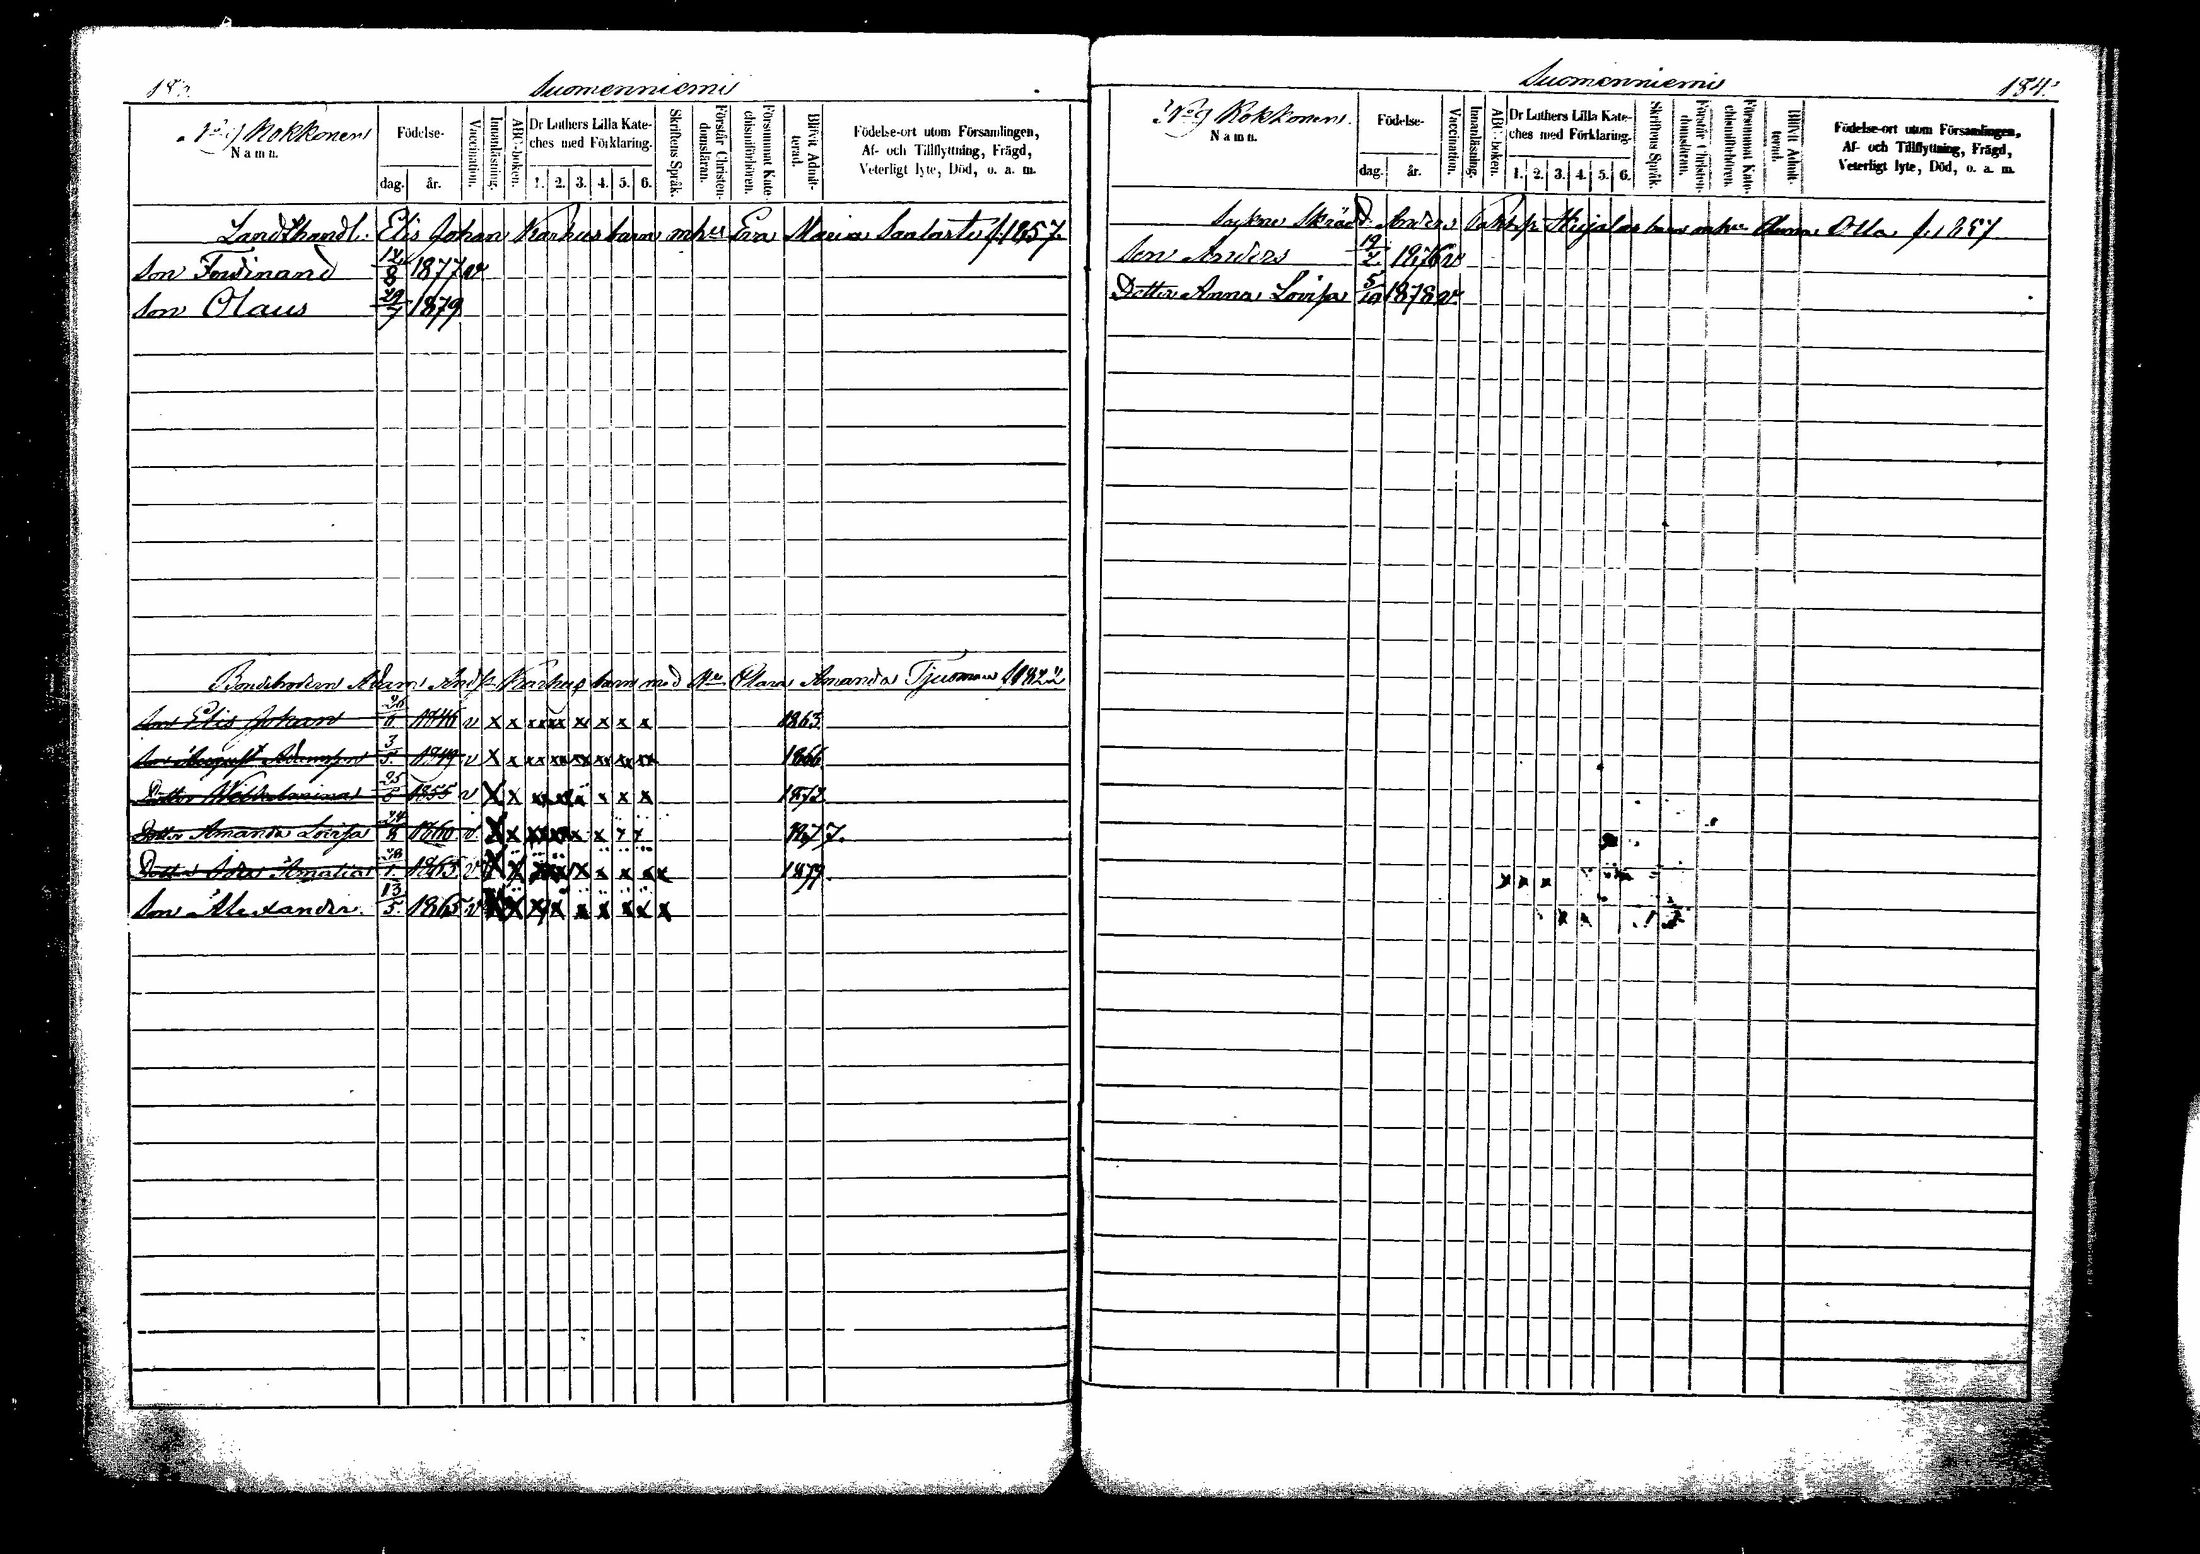 183.
Suomenniemi
No 9 Kokkonen
Namn.
Födelse-
dag. år.
Vaccination.
Innanläsning.
ABC-boken.
Dr Luthers Lilla Kate-
ches med Förklaring.
1. 2. 3. 4. 5. 6.
Skriftens Språk.
Förstår Christen-
domsläran.
Försummat Kate-
chismiförhören.
Blifvit Admit-
terad.
Födelse-ort utom Församlingen,
Af- och Tillflyttning, Frägd,
Veterligt lyte, Död, o. a. m.
Landthandl. Elis Johan Karhus barn mhu Eva Maria f. 1857.
Son Ferdinand 12/8 1877 v
Son Olaus 29/7 1879
Adam Karhus barn med Hu Clara Amanda Tjusman f. 1822
Son Elis Johan 26/6 1846 v x x xx xx x x x x 1863.
Son August Adamsson 3/5. 1849 v x x xx xx xx xx xx xx 1866.
Dotter 25/6 1855 v x x xx x x x x 1872
Dotter Amanda Lovisa 24/8 1860 v x x xx x x x x 1877.
Dotter Ida Amalia 28/1. 1863 v x x xx x x x x x 1879
Son Alexander. 13/5. 1865 v x x x x x x x x x
Suomenniemi
184.
No 9 Kokkonen.
Namn.
Födelse-
dag. år.
Vaccination.
Innanläsning.
ABC-boken.
Dr Luthers Lilla Kate-
ches med Förklaring.
1. 2. 3. 4. 5. 6.
Skriftens Språk.
Förstår Christen-
domsläran.
Försummat Kate-
chismiförhören.
Blifvit Admit-
terad.
Födelse-ort utom Församlingen,
Af- och Tillflyttning, Frägd,
Veterligt lyte, Död, o. a. m.
Sockne Skrädd. Anders barn mhu Anna Otta f.
Son Anders 19/2. 1876 v
Dotter Anna Lovisa 5/10 1878 v
x x x
x x